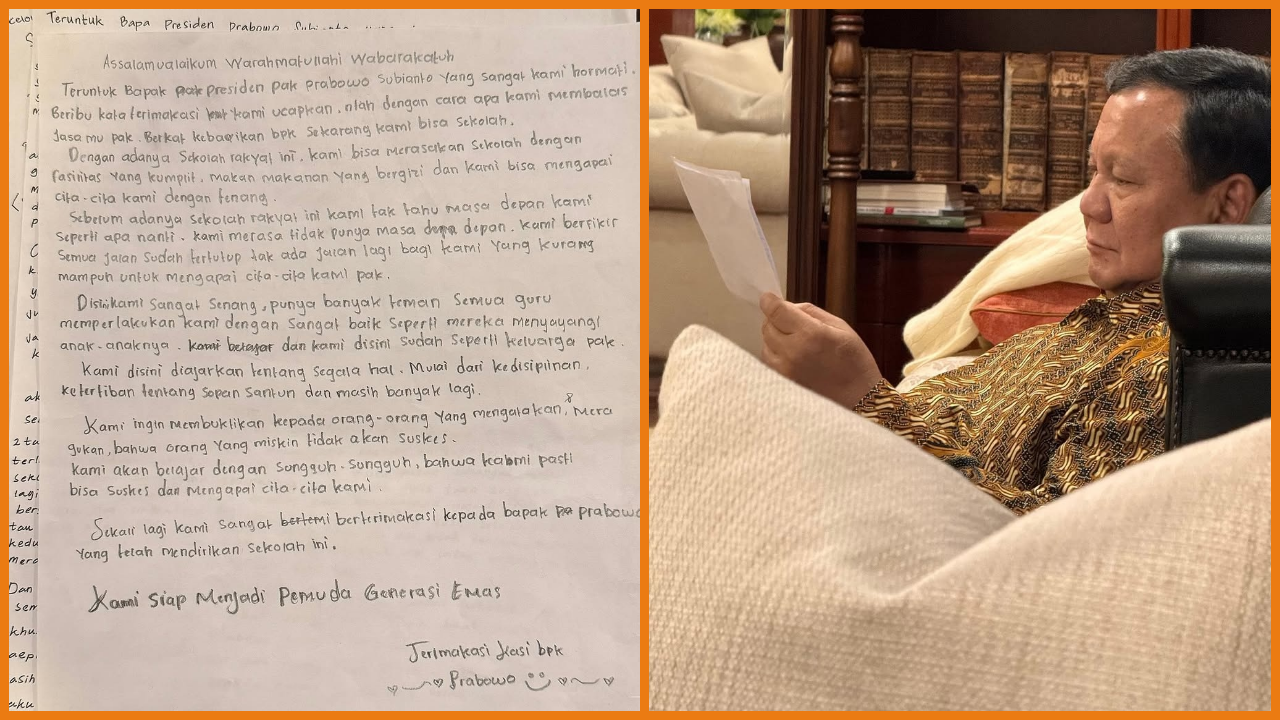 Teruntuk Bapa Presiden Prabowo
Assalamualaikum Warahmatullahi Wabarakatuh
Teruntuk Bapak pak Presiden Pak Prabowo Subianto Yang sangat kami hormati.
Beribu kata terimakasi kami ucapkan. ntah dengan cara apa kami membalas
Jasa mu pak. Berkat kebaikan bpk Sekarang kami bisa sekolah.
Dengan adanya Sekolah rakyat ini. kami bisa merasakan Sekolah dengan
fasilitas Yang kumplit. makan makanan Yang bergizi dan kami bisa mengapai
cita-cita kami dengan tenang.
Sebelum adanya sekolah rakyat ini kami tak tahu masa depan kami
seperti apa nanti. kami merasa tidak punya masa depan. kami berfikir
Semua jalan Sudah tertutup tak ada jalan lagi bagi kami Yang kurang
mampuh untuk mengapai cita-cita kami pak.
Disini kami Sangat Senang, punya banyak teman Semua guru
memperlakukan kami dengan Sangat baik Seperti mereka menyayangi
anak-anaknya. kami belajar dan kami disini Sudah Seperti keluarga pak.
Kami disini diajarkan tentang Segala hal. Mulai dari kedisiplinan,
ketertiban tentang Sopan Santun dan masih banyak lagi.
Kami ingin membuktikan kepada orang-orang Yang mengatakan, mera
gukan, bahwa orang Yang miskin tidak akan Suskes.
kami akan belajar dengan Sungguh-Sungguh, bahwa kami pasti
bisa Suskes dan Mengapai cita-cita kami.
Sekali lagi kami Sangat bertemi berterimakasi kepada bapak pa prabowo
Yang telah mendirikan Sekolah ini.
Kami Siap Menjadi Pemuda Generasi Emas
Terimakasi Kasi bpk
Prabowo